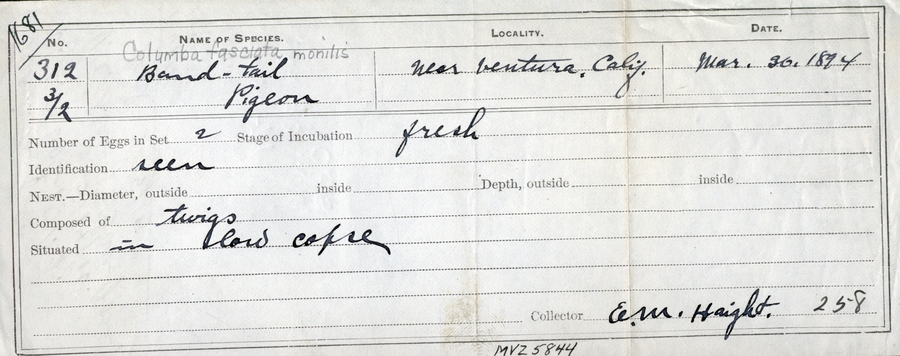 1681
No. NAME OF SPECIES. LOCALITY. DATE.
Columba fasciata monilis
312 Band-tail near Ventura, Calif. Mar. 30. 1894
3/2 Pigeon
Number of Eggs in Set 2 Stage of Incubation fresh
Identification seen
NEST.—Diameter, outside inside Depth, outside inside
Composed of twigs
Situated in low copse
Collector E. M. Haight. 258
MVZ 5844